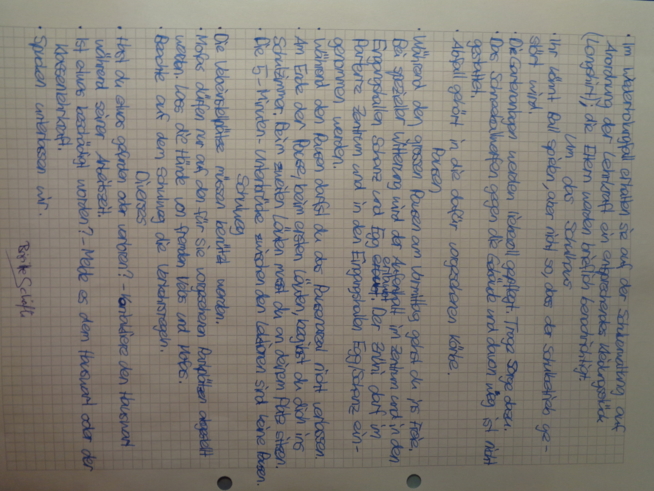 • Im Wiederholungsfall erhalten sie auf der Schulverwaltung auf
Anordnung der Lehrkraft ein entsprechendes Kleidungsstück
(Longshirt); die Eltern werden brieflich benachrichtigt.
Um das Schulhaus
• Ihr könnt Ball spielen, aber nicht so, dass der Schulbetrieb ge-
stört wird.
• Die Gartenanlagen werden liebevoll gepflegt. Trage Sorge dazu.
• Das Schneeballwerfen gegen die Gebäude und davon weg ist nicht
gestattet.
• Abfall gehört in die dafür vorgesehenen Körbe.
Pausen
• Während den grossen Pausen am Vormittag gehst du ins Freie.
Bei spezieller Witterung wird der Aufenthalt im Zentrum und in den
Eingangshallen Schorre und Egg erlaubt. Der Znüni darf im
Parterre Zentrum und in den Eingangshallen Egg/Schorre ein-
genommen werden.
• Während den Pausen darfst du das Pausenareal nicht verlassen.
• Am Ende der Pause, beim ersten Läuten, begibst du dich ins
Schulzimmer. Beim zweiten Läuten musst du an deinem Platz sitzen.
• Die 5-Minuten-Unterbrüche zwischen den Lektionen sind keine Pausen.
Schulweg
• Die Veloabstellplätze müssen benützt werden.
• Mofas dürfen nur auf den für sie vorgesehenen Parkplätzen abgestellt
werden. Lass die Hände von fremden Velos und Mofas.
• Beachte auf dem Schulweg die Verkehrsregeln.
Diverses
• Hast du etwas gefunden oder verloren? - Kontaktiere den Hauswart
während seiner Arbeitszeit.
• Ist etwas beschädigt worden? - Melde es dem Hauswart oder der
Klassenlehrkraft.
• Spucken unterlassen wir.